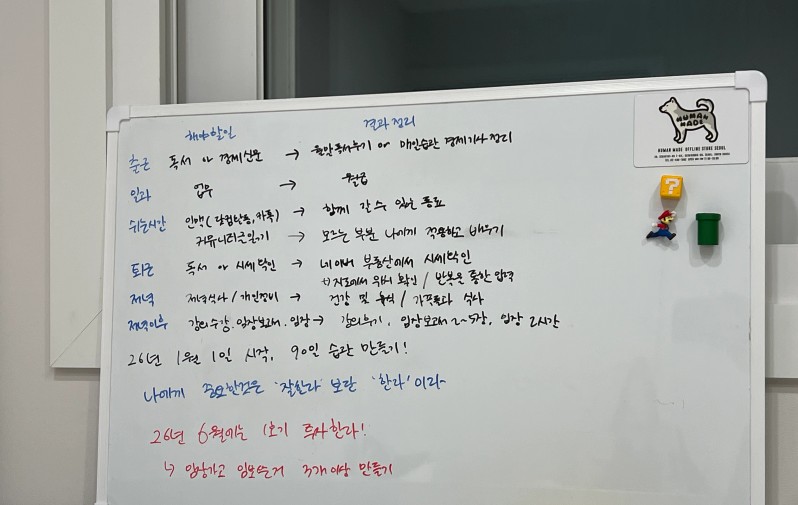 해야할일 결과정리
출근 독서 or 경제신문 → 독서후기 or 매일습관 경제기사 정리
일과 업무 → 월급
쉬는시간 인맥(닷컴활동, 카톡) → 함께 갈 수 있는 동료
커뮤니티글읽기 → 모르는 부분 나에게 적용하고 배우기
퇴근 독서 or 시세확인 → 네이버 부동산에서 시세확인
지도에서 위치 확인 / 반복을 통한 입력
저녁 저녁식사 / 개인정비 → 건강 및 휴식 / 가족들과 식사
저녁이후 강의수강·임장보고서·임장 → 강의후기, 임장보고서 2~5장, 임장 2시간
26년 1월 1일 시작, 90일 습관 만들기!
나에게 중요한것은 '잘한다' 보단 '한다' 이다~
26년 6월에는 1호기 투자한다!
↳ 임장가고 임보쓴거 3개이상 만들기
HUMAN MADE
HUMAN MADE OFFLINE STORE SEOUL
?